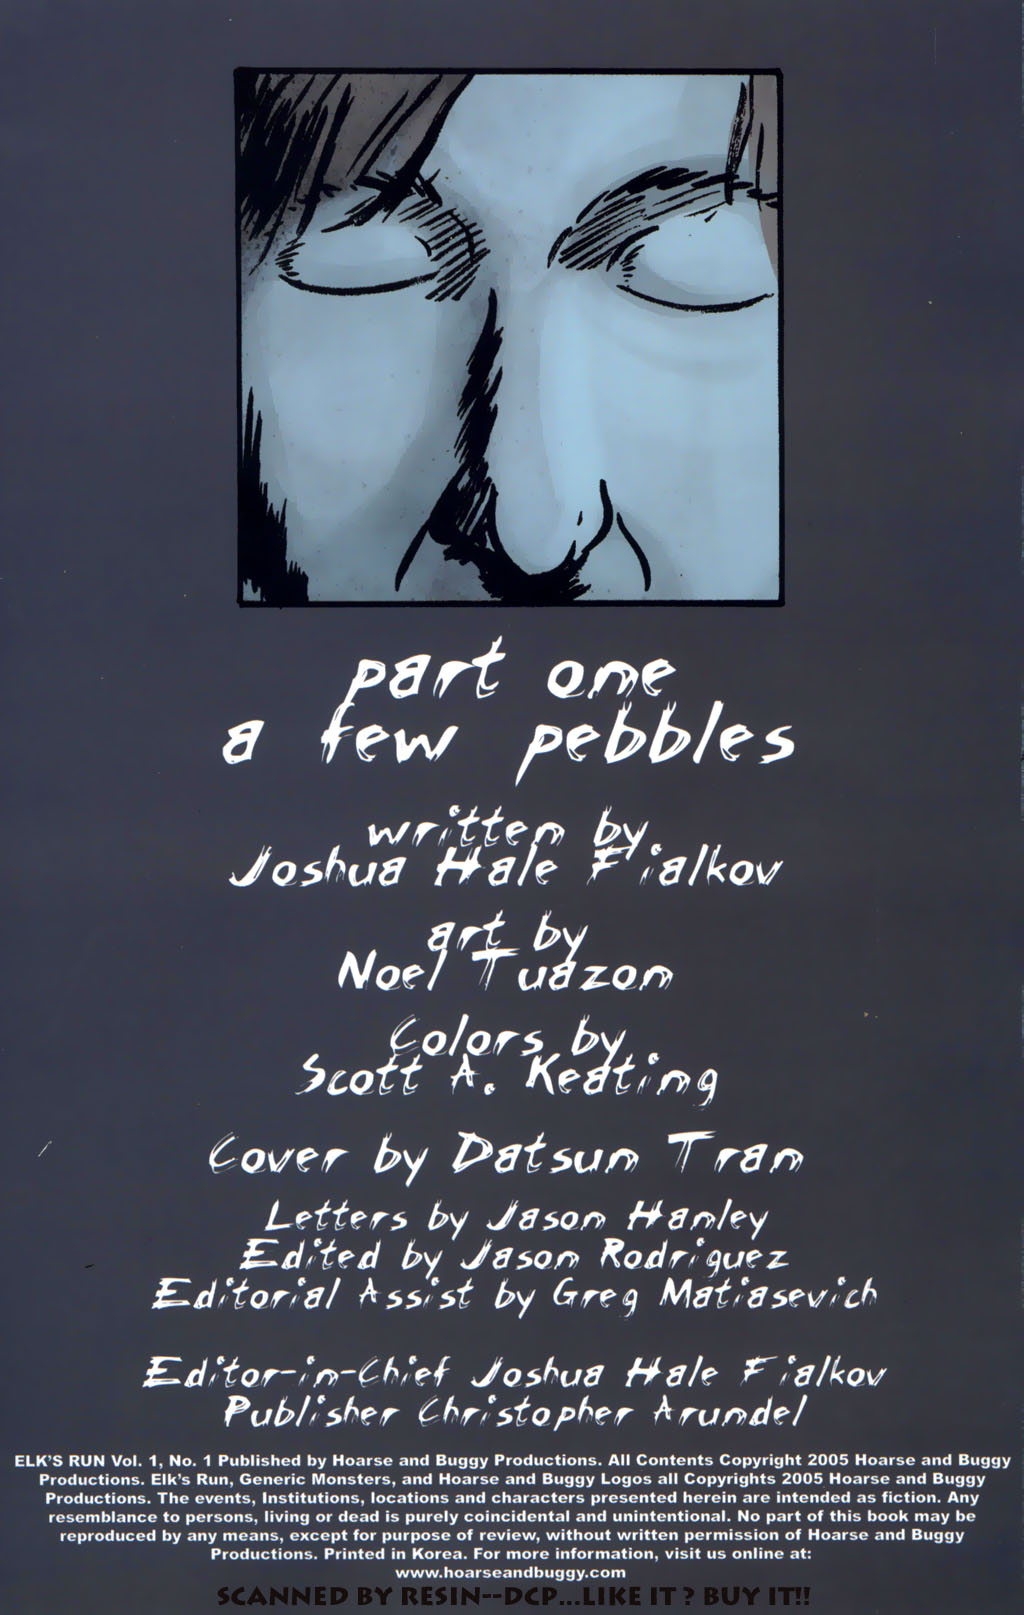 part one
a few pebbles
written by
Joshua Hale Fialkov
art by
Noel Tuazon
Colors by
Scott A. Keating
Cover by Datsun Tran
Letters by Jason Hanley
Edited by Jason Rodriguez
Editorial Assist by Greg Matiasevich
Editor-in-Chief Joshua Hale Fialkov
Publisher Christopher Arundel
ELK'S RUN Vol. 1, No. 1 Published by Hoarse and Buggy Productions. All Contents Copyright 2005 Hoarse and Buggy
Productions. Elk's Run, Generic Monsters, and Hoarse and Buggy Logos all Copyrights 2005 Hoarse and Buggy
Productions. The events, Institutions, locations and characters presented herein are intended as fiction. Any
resemblance to persons, living or dead is purely coincidental and unintentional. No part of this book may be
reproduced by any means, except for purpose of review, without written permission of Hoarse and Buggy
Productions. Printed in Korea. For more information, visit us online at:
www.hoarseandbuggy.com
SCANNED BY RESIN--DCP...LIKE IT? BUY IT!!